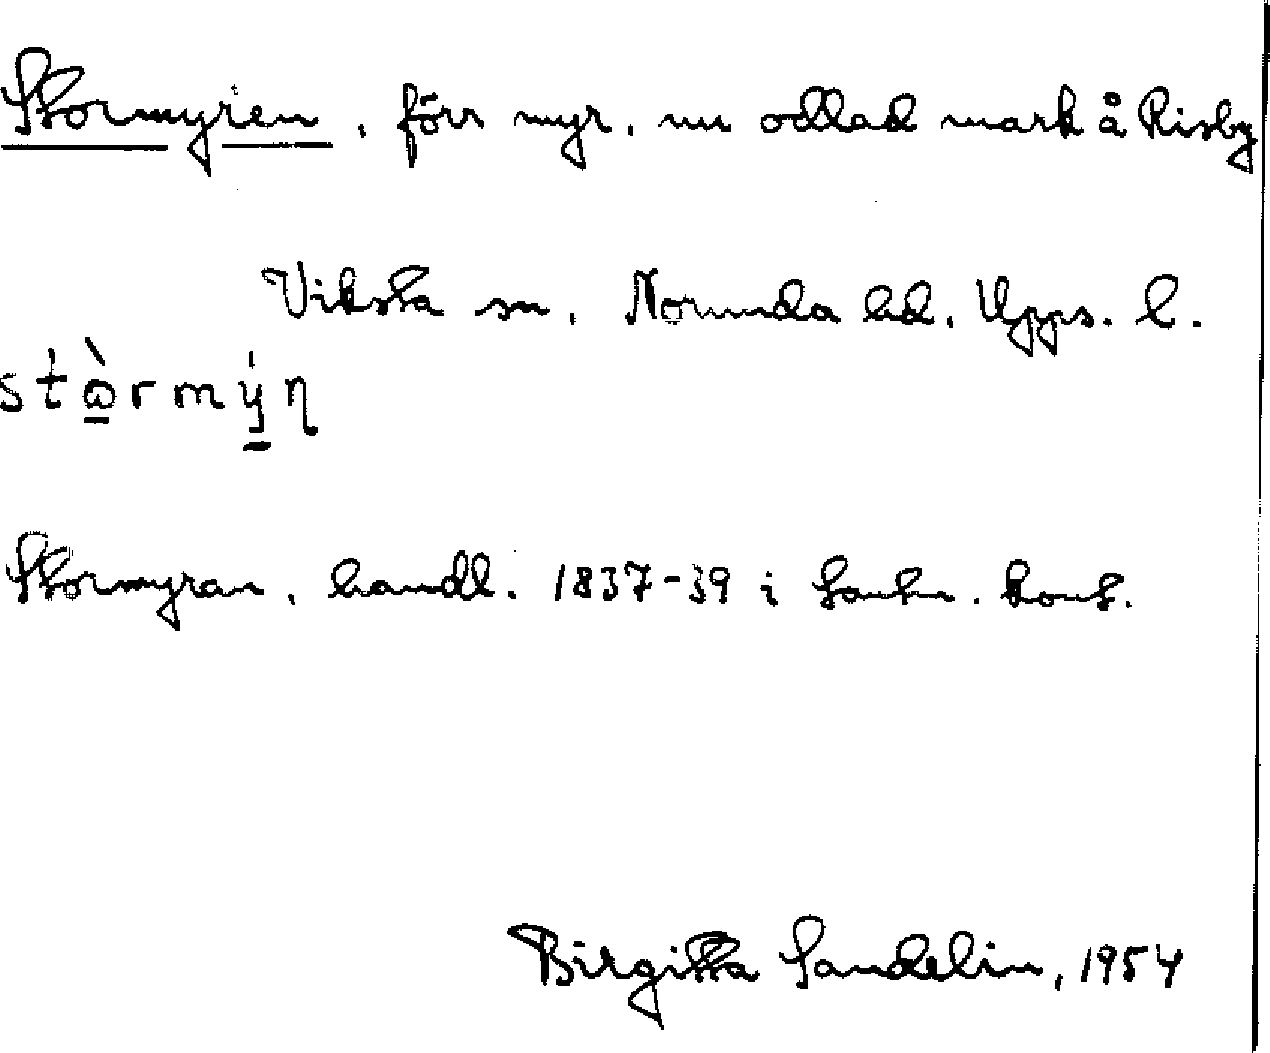 Stormyren, förr myr, nu odlad mark å Risby
Viksta sn, Norunda hd. Upps. l.
stɷ̀rmýn
Stormyran, handl. 1837-39 i Lantm. kont.
Birgitta Sandelin, 1954